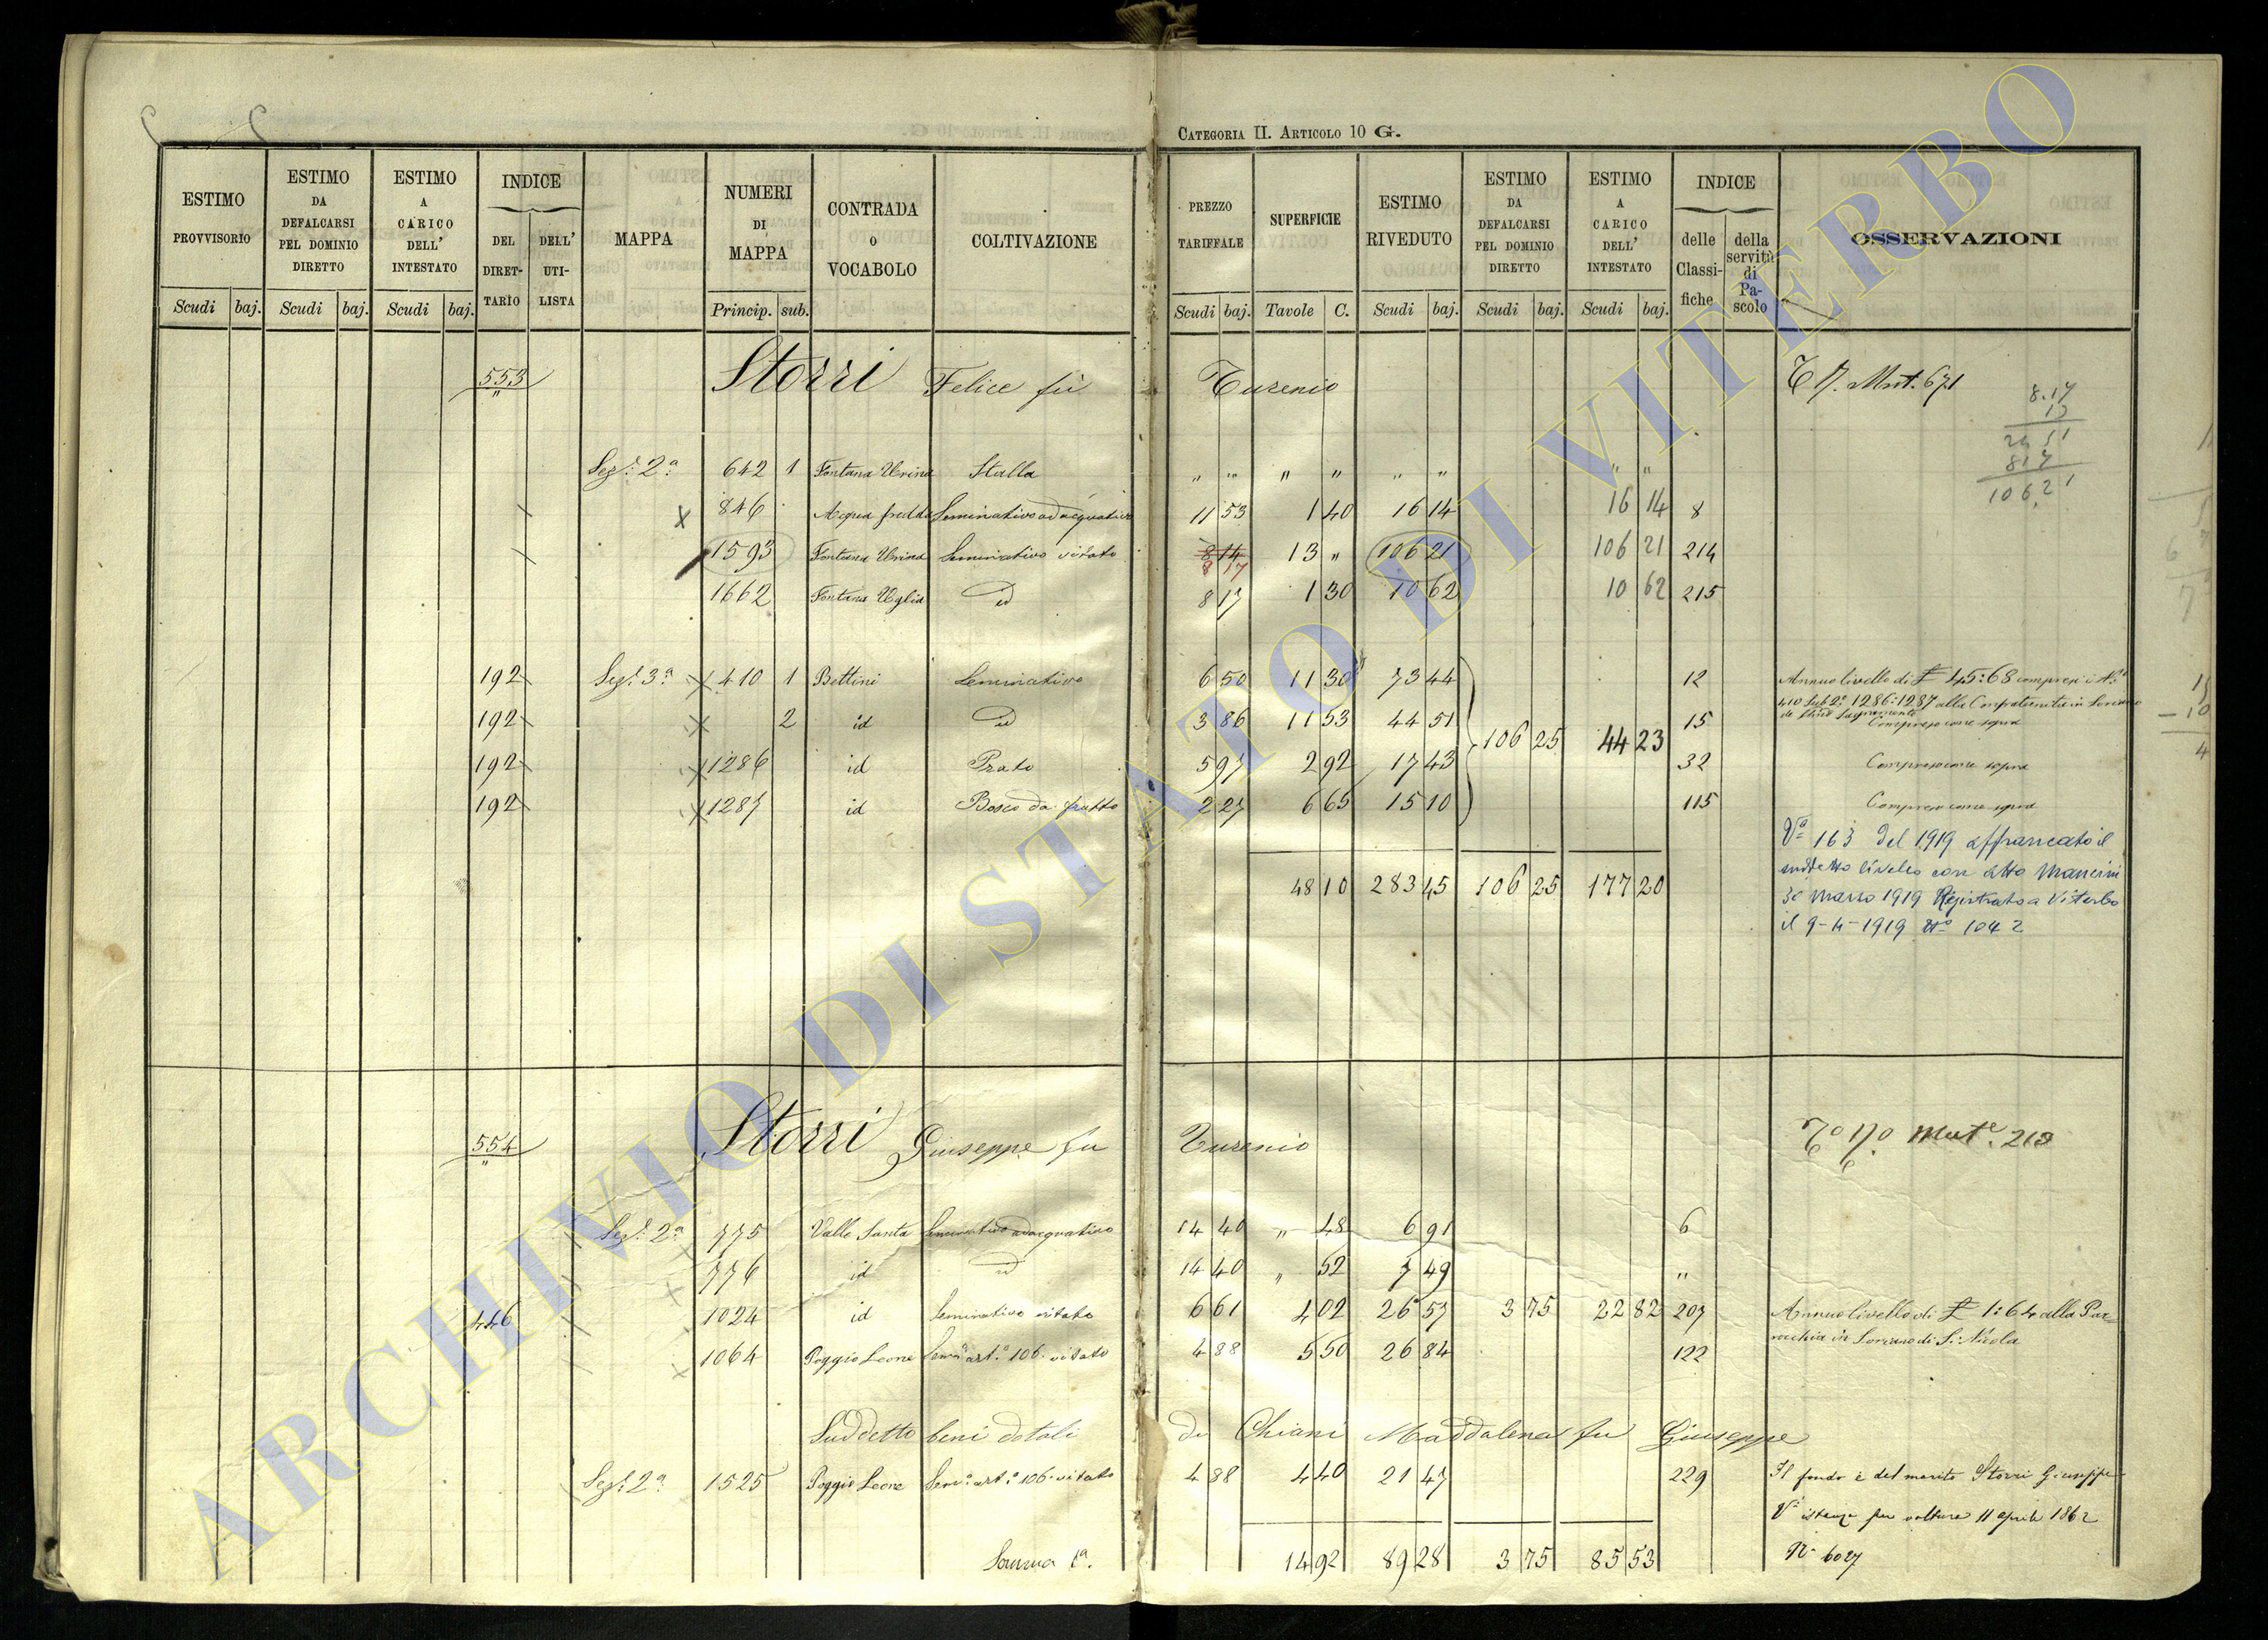 CATEGORIA II. ARTICOLO 10 G.
ESTIMO PROVVISORIO Scudi baj.
ESTIMO DA DEFALCARSI PEL DOMINIO DIRETTO Scudi baj.
ESTIMO A CARICO DELL' INTESTATO Scudi baj.
INDICE DEL DIRET-TARIO DELL' UTI-LISTA
MAPPA
NUMERI DI MAPPA Princip. sub.
CONTRADA O VOCABOLO
COLTIVAZIONE
PREZZO TARIFFALE Scudi baj.
SUPERFICIE Tavole C.
ESTIMO RIVEDUTO Scudi baj.
ESTIMO DA DEFALCARSI PEL DOMINIO DIRETTO Scudi baj.
ESTIMO A CARICO DELL' INTESTATO Scudi baj.
INDICE delle Classi-fiche della servitù di Pa-scolo
OSSERVAZIONI
553 Storri Felice fù Eusenio Mut. 671
8.17
13
24 51
817
106,21
Sez. 2a 642 1 Fontana Stalla " " " " " " " "
846 Acqua fredda Seminativo adacquativo 11 53 1 40 16 14 16 14 8
1593 Fontana Seminativo vitato 8 14 8 17 13 " 106 21 106 21 214
1662 Fontana id 8 17 1 30 10 62 10 62 215
192 Sez. 3a 410 1 Bettini Seminativo 6 50 11 30 73 44 12 Annuo livello di £ 45:68 compresi i Ni
410 Sub 2: 1286:1287 alla Confraternita in Soriano
192 2 id id 3 86 11 53 44 51 106 25 44 23 15 Compreso come sopra
192 1286 id Prato 5 97 2 92 17 43 32 Compreso come sopra
192 1287 id Bosco da frutto 2 27 6 65 15 10 115 Compreso come sopra
Va 163 del 1919 affrancato il
suddetto livello con atto Mancini
30 Marzo 1919 Registrato a Viterbo
il 9-4-1919 No 1042
48 10 283 45 106 25 177 20
554 Storri Giuseppe fu Eusenio Mute. 218
Sez. 2a 775 Valle Santa Seminativo adacquativo 14 40 " 48 6 91 6
776 id id 14 40 " 52 7 49 "
446 1024 id Seminativo vitato 6 61 4 02 26 57 3 75 22 82 207 Annuo livello di £ 1:64 alla Par-
rocchia in Soriano di S. Nicola
1064 Poggio Leone Semo art.o 106 vitato 4 88 5 50 26 84 122
Suddetto beni dotali di Chiani Maddalena fu Giuseppe
Sez. 2a 1525 Poggio Leone Semo art.o 106 vitato 4 88 4 40 21 47 229 Il fondo è del marito Storri Giuseppe
Va istanza per voltura 11 aprile 1862
No 6027
Somma 1a. 14 92 89 28 3 75 85 53
ARCHIVIO DI STATO DI VITERBO